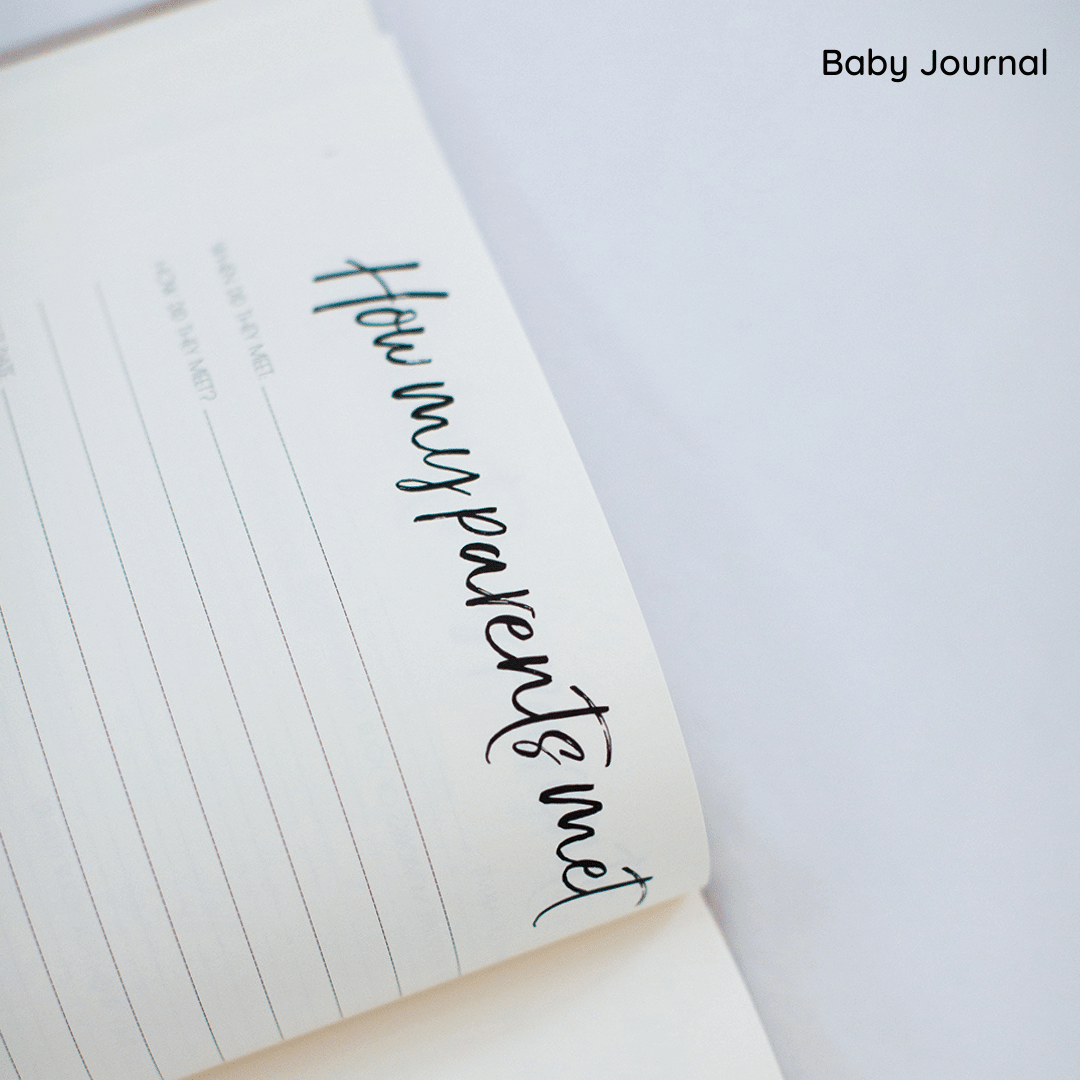 Baby Journal
How my parents met
WHEN DID THEY MEET:
HOW DID THEY MEET?